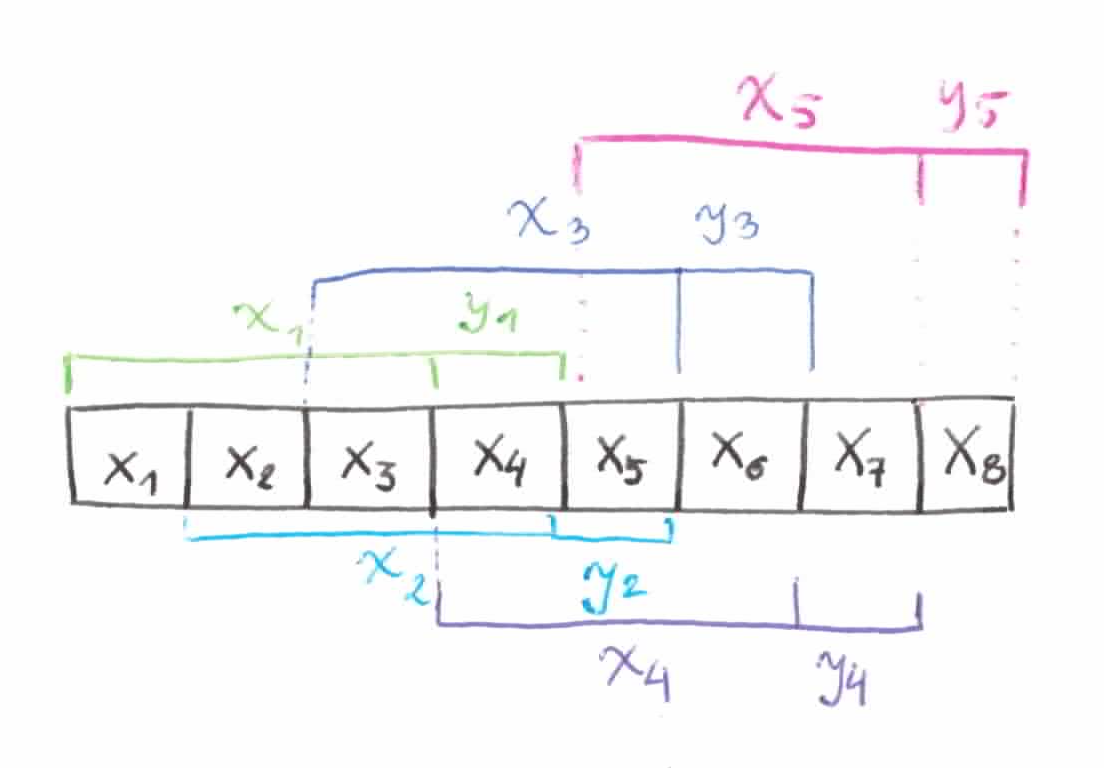 x₅ y₅
x₃ y₃
x₁ y₁
X₁ X₂ X₃ X₄ X₅ X₆ X₇ X₈
x₂ y₂
x₄ y₄